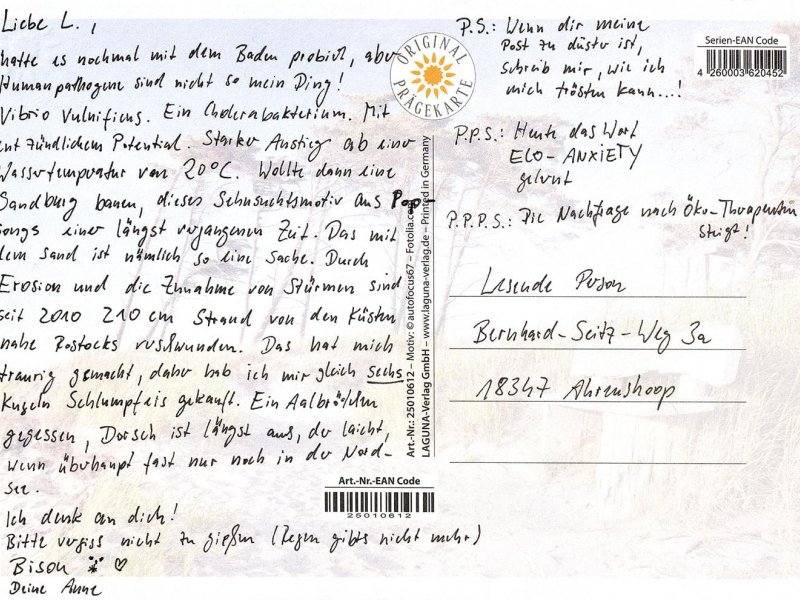 Liebe L.,
hatte es nochmal mit dem Baden probiert, aber
Humanpathogene sind nicht so mein Ding!
Vibrio Vulnificus. Ein Cholerabakterium. Mit
entzündlichem Potential. Starker Anstieg ab einer
Wassertemperatur von 20°C. Wollte dann eine
Sandburg bauen, dieses Sehnsuchtsmotiv aus Pop-
songs einer längst vergangenen Zeit. Das mit
dem Sand ist nämlich so eine Sache. Durch
Erosion und die Zunahme von Stürmen sind
seit 2010 210 cm Strand von den Küsten
nahe Rostocks verschwunden. Das hat mich
traurig gemacht, daher hab ich mir gleich sechs
Kugeln Schlumpfeis gekauft. Ein Aalbrötchen
gegessen, Dorsch ist längst aus, der laicht,
wenn überhaupt fast nur noch in der Nord-
see.
Ich denk an dich!
Bitte vergiss nicht zu gießen (Regen gibts nicht mehr)
Bisou
Deine Anne
ORIGINAL
PRÄGEKARTE
Art.-Nr.: 25010612 – Motiv: © autofocus67 – Fotolia.com
LAGUNA-Verlag GmbH – www.laguna-verlag.de – Printed in Germany
Art.-Nr.-EAN Code
25010612
P.S.: Wenn dir meine
Post zu düster ist,
schreib mir, wie ich
mich trösten kann...!
Serien-EAN Code
4 260003 620452
P.P.S.: Heute das Wort
ECO-ANXIETY
gelernt
P.P.P.S.: Die Nachfrage nach Öko-Therapeuten
steigt!
Lesende Person
Bernhard-Seitz-Weg 3a
18347 Ahrenshoop